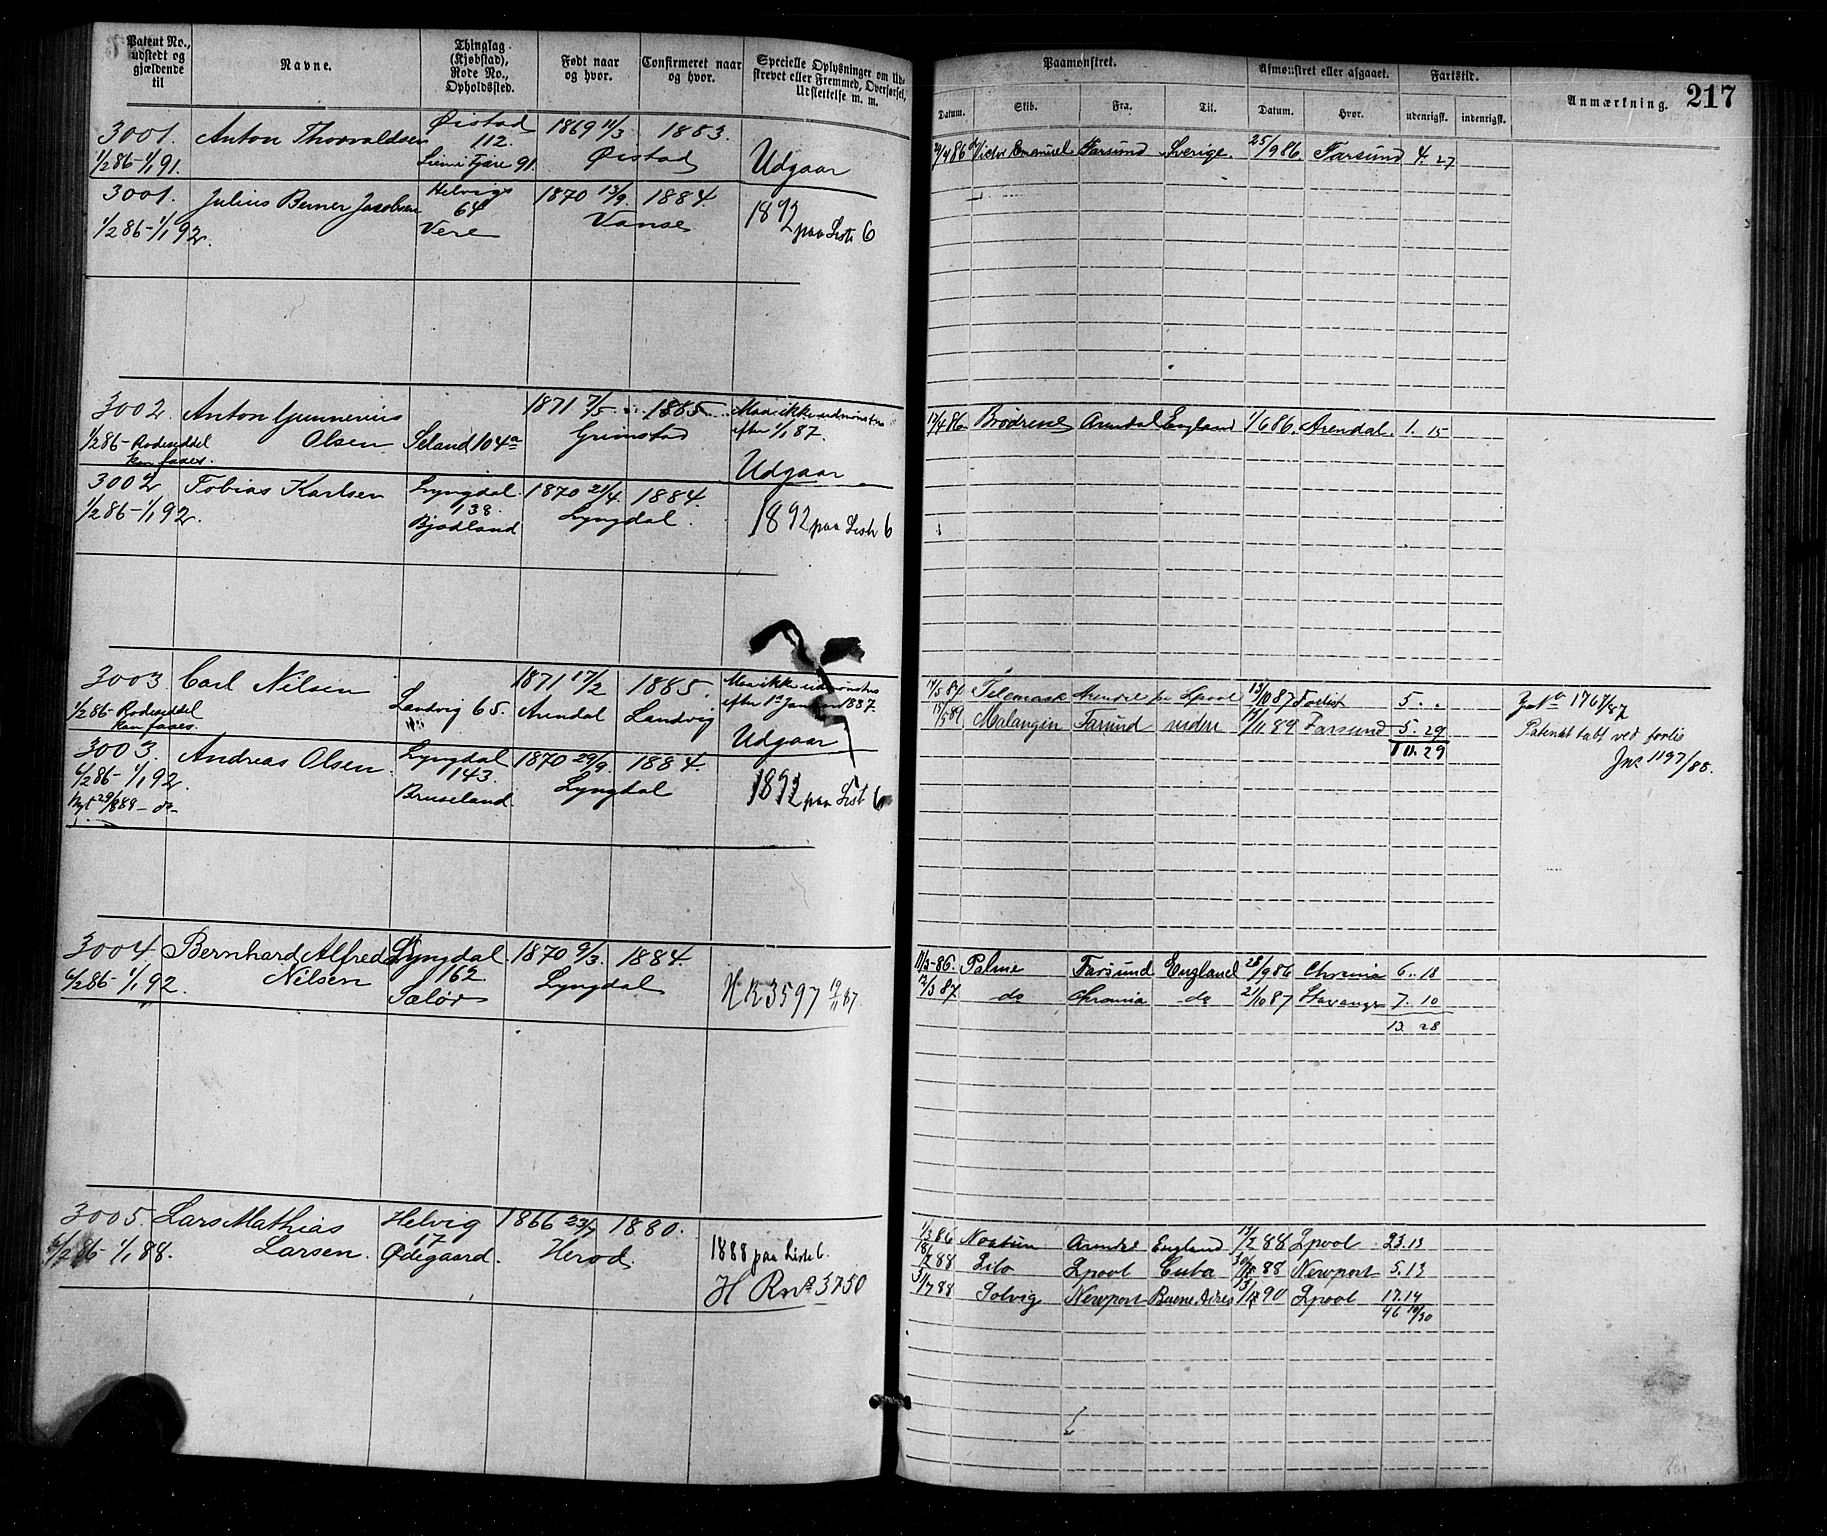 Patent No., udstedt og gjældende til
Navne.
Thinglag (Kjøbstad), Rode No., Opholdssted.
Født naar og hvor.
Confirmeret naar og hvor.
Specielle Oplysninger om Ud-
strevet eller Fremmed, Overførsel,
Udslettelse m. m.
Paamønstret.
Afmønstret eller afgaaet.
Fartstid.
Anmærkning.
217
Datum.
Skib.
Fra.
Til.
Datum.
Hvor.
udenrigsk.
indenrigsk.
3001. Anton Thorvaldsen Øistad 1869 11/3 1883.
112.
1/2 86-1/1 91. 91. Øistad Udgaar
Victor Emanuel Farsund Sverige 25/9 86 Farsund 4. 27
3001. Julius Berner Jacobsen Helvigs 1870 13/9. 1884.
64
1/2 86-1/1 92. Vere Vanse 1892 paa Liste 6
3002. Anton Gunnerius 1871 7/5 1885. Maa ikke udmønstres
1/2 86- Rodeseddel Olsen Seland 104a Grimstad efter 1/1 87.
kan faaes.
Udgaar
17/4 86 Brødrene Arendal England 1/6 86. Arendal. 1. 15
3002. Tobias Karlsen Lyngdal 1870 21/4. 1884.
138.
1/2 86-1/1 92. Bjodland Lyngdal. 1892 paa Liste 6
3003 Carl Nilsen 1871 17/2 1885. Maa ikke udmønstres
1/2 86- Rodeseddel Landvig 65. Arendal Landvig efter 1ste Januar 1887.
kan faaes.
Udgaar
17/5 87 Telemark Arendal pr Lpool 13/10 87 Forlist 5. .
15/5 89 Malangen Farsund videre 14/11 89 Farsund 5. 29
10. 29
Jno 1767/87
Patentet tabt ved forlis
Jnr 1197/88.
3003. Andreas Olsen Lyngdal 1870 29/9. 1884.
6/2 86- 1/1 92. 143.
Nyt 29/8 88 - do- Bruseland Lyngdal 1892 paa List 6
3004. Bernhard Alfred Lyngdal 1870 9/3. 1884.
6/2 86- 1/1 92. Nilsen 162
Saløv Lyngdal HR 3597 19/11 87.
11/3-86. Palme Farsund England 28/9 86 Chrania 6. 18
2/3 87 do Chrania do 21/10 87 Stavanger 7. 10
13. 28
3005. Lars Mathias Helvig 1866 23/7 1880.
17
6/2 86- 1/1 88. Larsen. Ødegaard. Herod. 1888 paa Liste 6.
H Rno 3750
1/3 86 Noatun Arendal England 13/2 88 Lpool 23. 13
18/2 88 Lilo Lpool Cuba 88 Newport 5. 13
31/7 88 Solvig Newport Buene Aires 90 Lpool 17. 14
46 10/30